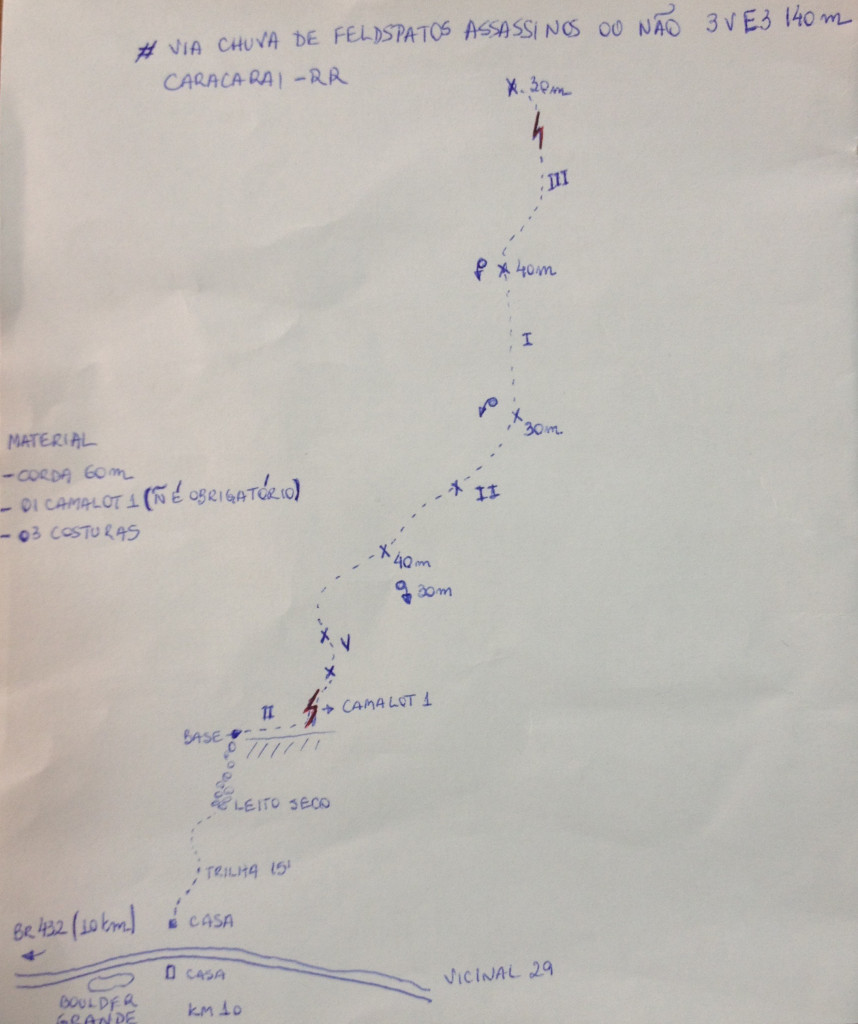 # VIA CHUVA DE FELDSPATOS ASSASSINOS OU NÃO 3 V E3 140m
CARACARAI - RR
30m
III
40m
I
30m
MATERIAL
- CORDA 60m
- 01 CAMALOT 1 (Ñ É OBRIGATÓRIO)
- 03 COSTURAS
II
40m
30m
V
II
CAMALOT 1
BASE
LEITO SECO
TRILHA 15'
BR 432 (10km)
CASA
CASA
VICINAL 29
BOULDER
GRANDE
KM 10